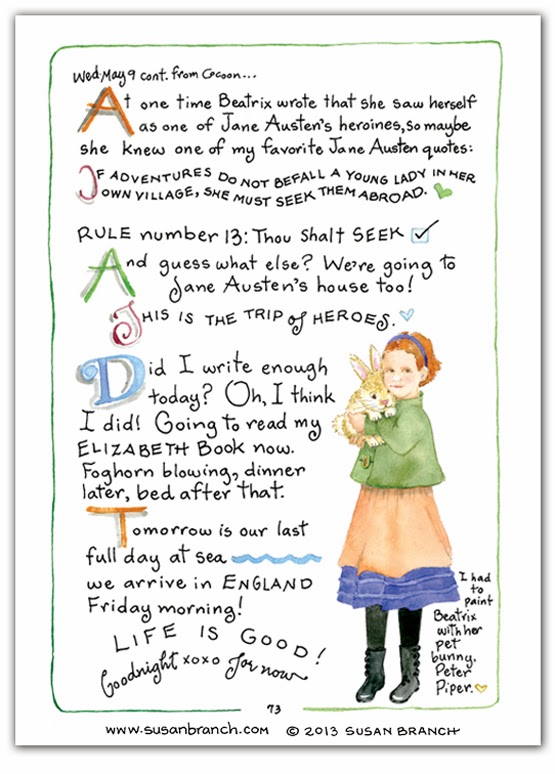 Wed.May 9 cont. from Cocoon...
At one time Beatrix wrote that she saw herself
as one of Jane Austen's heroines, so maybe
she knew one of my favorite Jane Austen quotes:
IF ADVENTURES DO NOT BEFALL A YOUNG LADY IN HER
OWN VILLAGE, SHE MUST SEEK THEM ABROAD.
RULE number 13: Thou Shalt SEEK
And guess what else? We're going to
Jane Austen's house too!
THIS IS THE TRIP of HEROES.
Did I write enough
today? Oh, I think
I did! Going to read my
ELIZABETH Book now.
Foghorn blowing, dinner
later, bed after that.
Tomorrow is our last
full day at sea
we arrive in ENGLAND
Friday morning!
LIFE IS GOOD!
Goodnight xoxo for now
I had
to
paint
Beatrix
with her
pet
bunny,
Peter
Piper.
73
www.susanbranch.com © 2013 SUSAN BRANCH